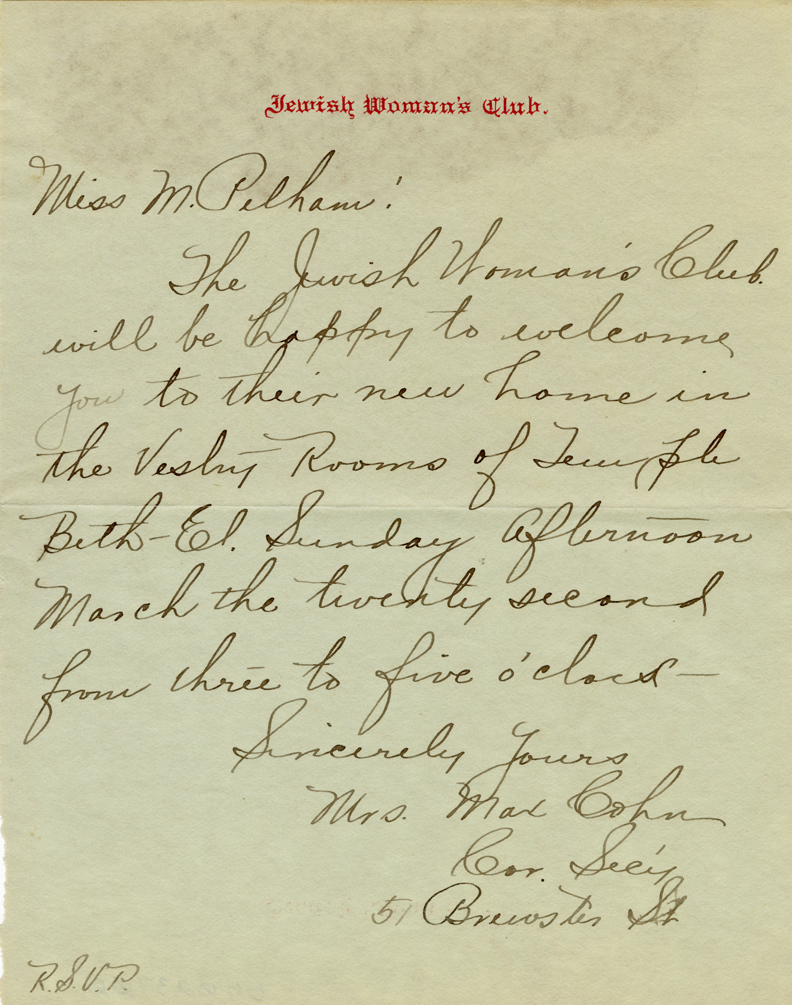 Jewish Woman's Club.
Miss M. Pelham!
The Jewish Woman's Club.
will be happy to welcome
you to their new home in
the Vestry Rooms of Temple
Beth-El. Sunday Afternoon
March the twenty second
from three to five o'clock—
Sincerely Yours
Mrs. Max Cohn
Cor. Sec'y
51 Brewster St
R.S.V.P.